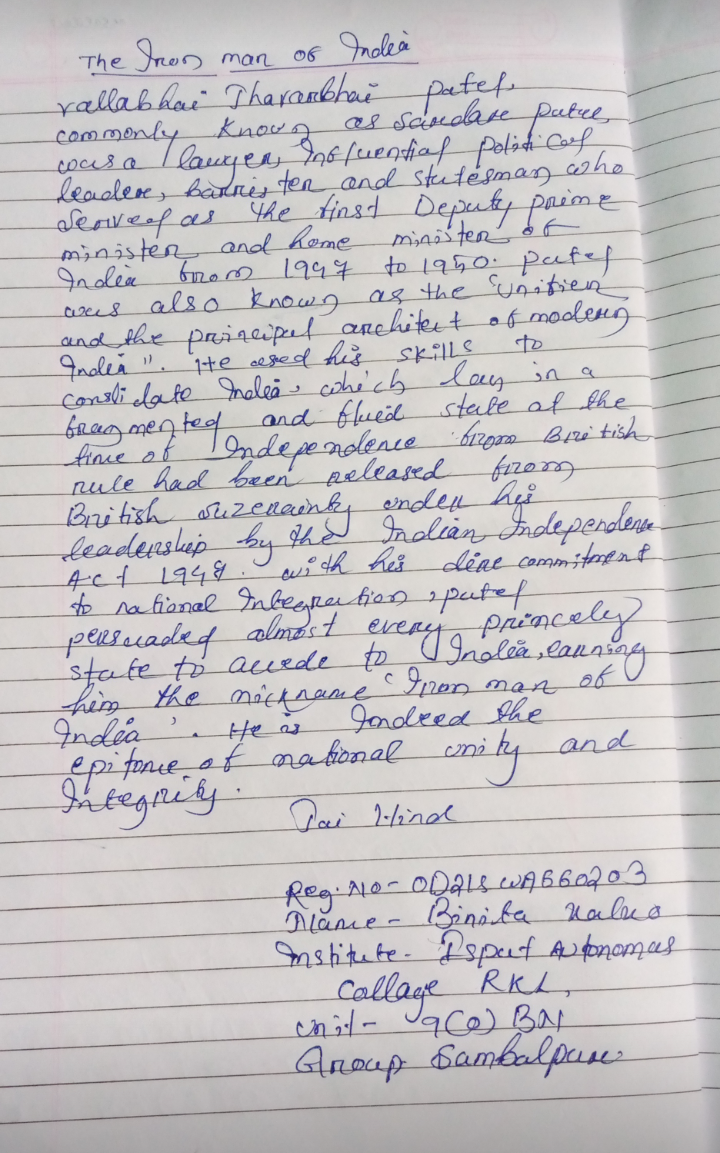 The Iron man of India
vallabhai Jhavarbhai patel,
commonly known as Sardar Patel,
was a lawyer, Influential political
leader, barrister and statesman who
served as the first Deputy prime
minister and home minister of
India from 1947 to 1950. patel
was also known as the "unifier
and the principal architect of modern
India". He used his skills to
consolidate India, which lay in a
fragmented and fluid state at the
time of Independence from British
rule had been released from
British suzerainty under his
leadership by the Indian Independence
Act 1947. with his dire commitment
to national Integration, patel
persuaded almost every princely
state to accede to India, earning
him the nickname 'Iron man of
India'. He is Indeed the
epitome of national unity and
Integrity.
Jai Hind
Reg. No - OD21SWA660203
Name - Binita
Institute - Ispat Autonomas
Collage RKL,
Unit - 9(O) BN
Group Sambalpur